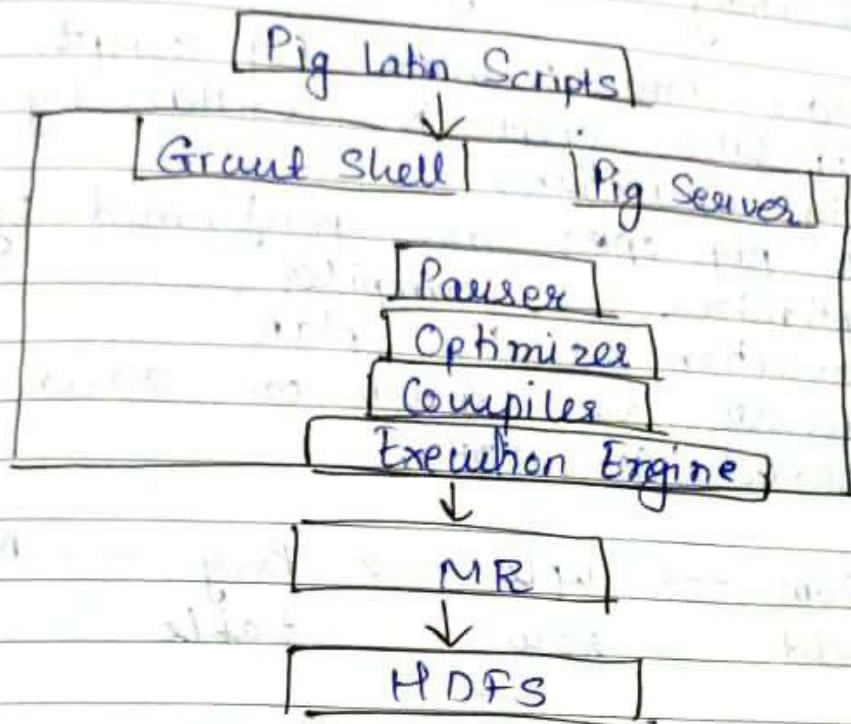 Pig Latin Scripts
Graunt Shell Pig Server
Parser
Optimizer
Compiler
Execution Engine
MR
HDFS